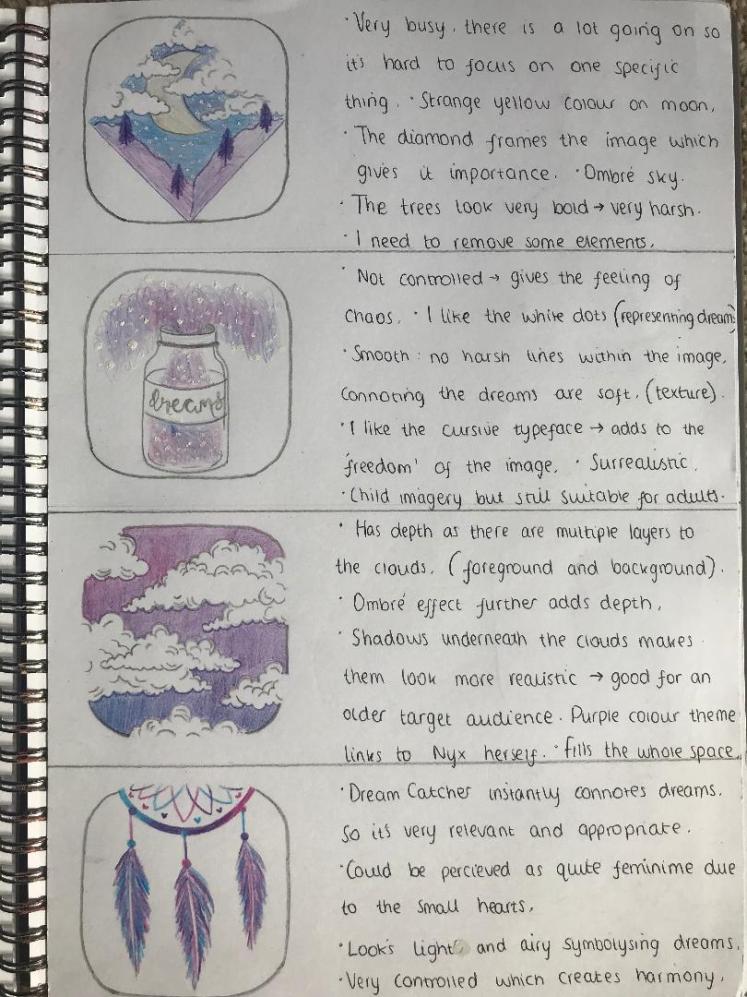 · Very busy. there is a lot going on so
it's hard to focus on one specific
thing. · Strange yellow colour on moon.
· The diamond frames the image which
gives it importance. · Ombré sky.
· The trees look very bold → very harsh.
· I need to remove some elements.
· Not controlled → gives the feeling of
chaos. · I like the white dots (representing dreams)
· Smooth : no harsh lines within the image,
connoting the dreams are soft. (texture).
· I like the cursive typeface → adds to the
'freedom' of the image. · Surrealistic.
· Child imagery but still suitable for adults.
dreams
· Has depth as there are multiple layers to
the clouds. (foreground and background).
· Ombré effect further adds depth.
· Shadows underneath the clouds makes
them look more realistic → good for an
older target audience. Purple colour theme
links to Nyx herself. · fills the whole space.
· Dream Catcher instantly connotes dreams.
So it's very relevant and appropriate.
· Could be percieved as quite feminime due
to the small hearts.
· Looks light and airy symbolysing dreams.
· Very controlled which creates harmony.